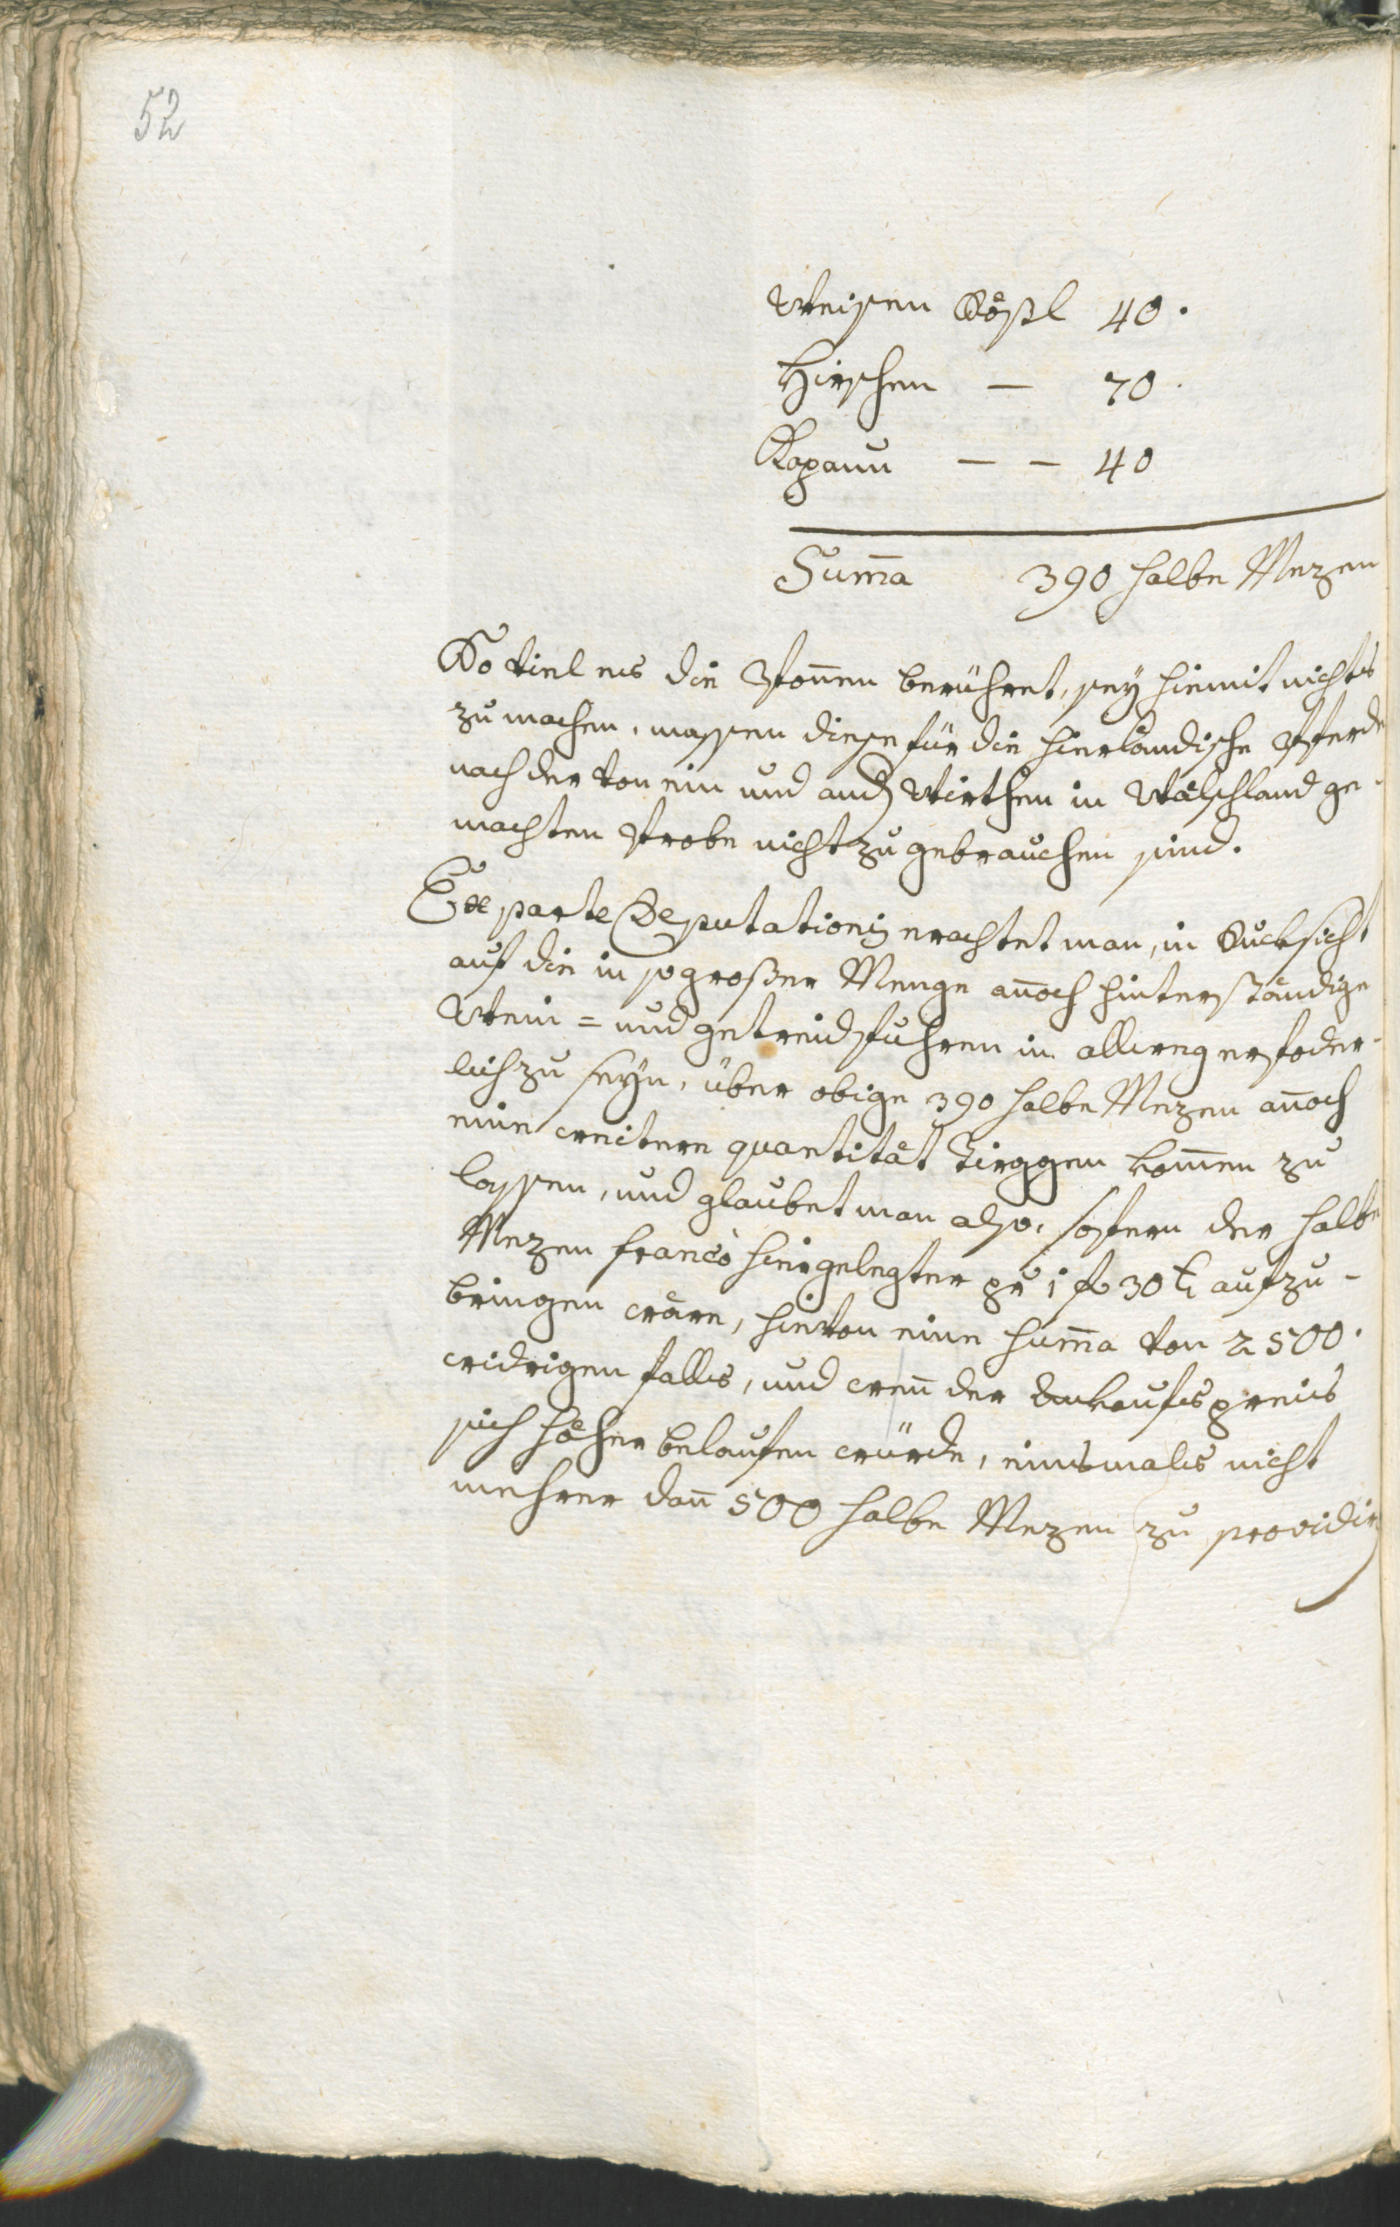 52
Weisen Rößl 40.
Hirschen — 70.
Kapaun — — 40
Sum̄a 390 halbe Mezen
So viel es die Pfon̄en berühret, sey hiemit nichts
zu machen, massen diese für die hierländische Pferde
nach der von ein und andern Wirthen in Wälschland ge-
machten Probe nicht zu gebrauchen sind.
Ex parte Deputationis erachtet man, in Rucksicht
auf die in so großer Menge an̄och hinterständige
Wein= und getreidfuhren in allweg erfoder-
lich zu seyn, über obige 390 halbe Mezen an̄och
eine weitere quantität Tirggen kom̄en zu
lassen, und glaubet man also, sofern der halbe
Mezen francò hiergelegter pr 1 fl 30 x aufzu-
bringen wäre, hievon eine Sum̄a von 2500.
widrigen falls, und wen̄ der Einkaufs preis
sich höher belaufen würde, einsmals nicht
mehrer dan̄ 500 halbe Mezen zu providirn